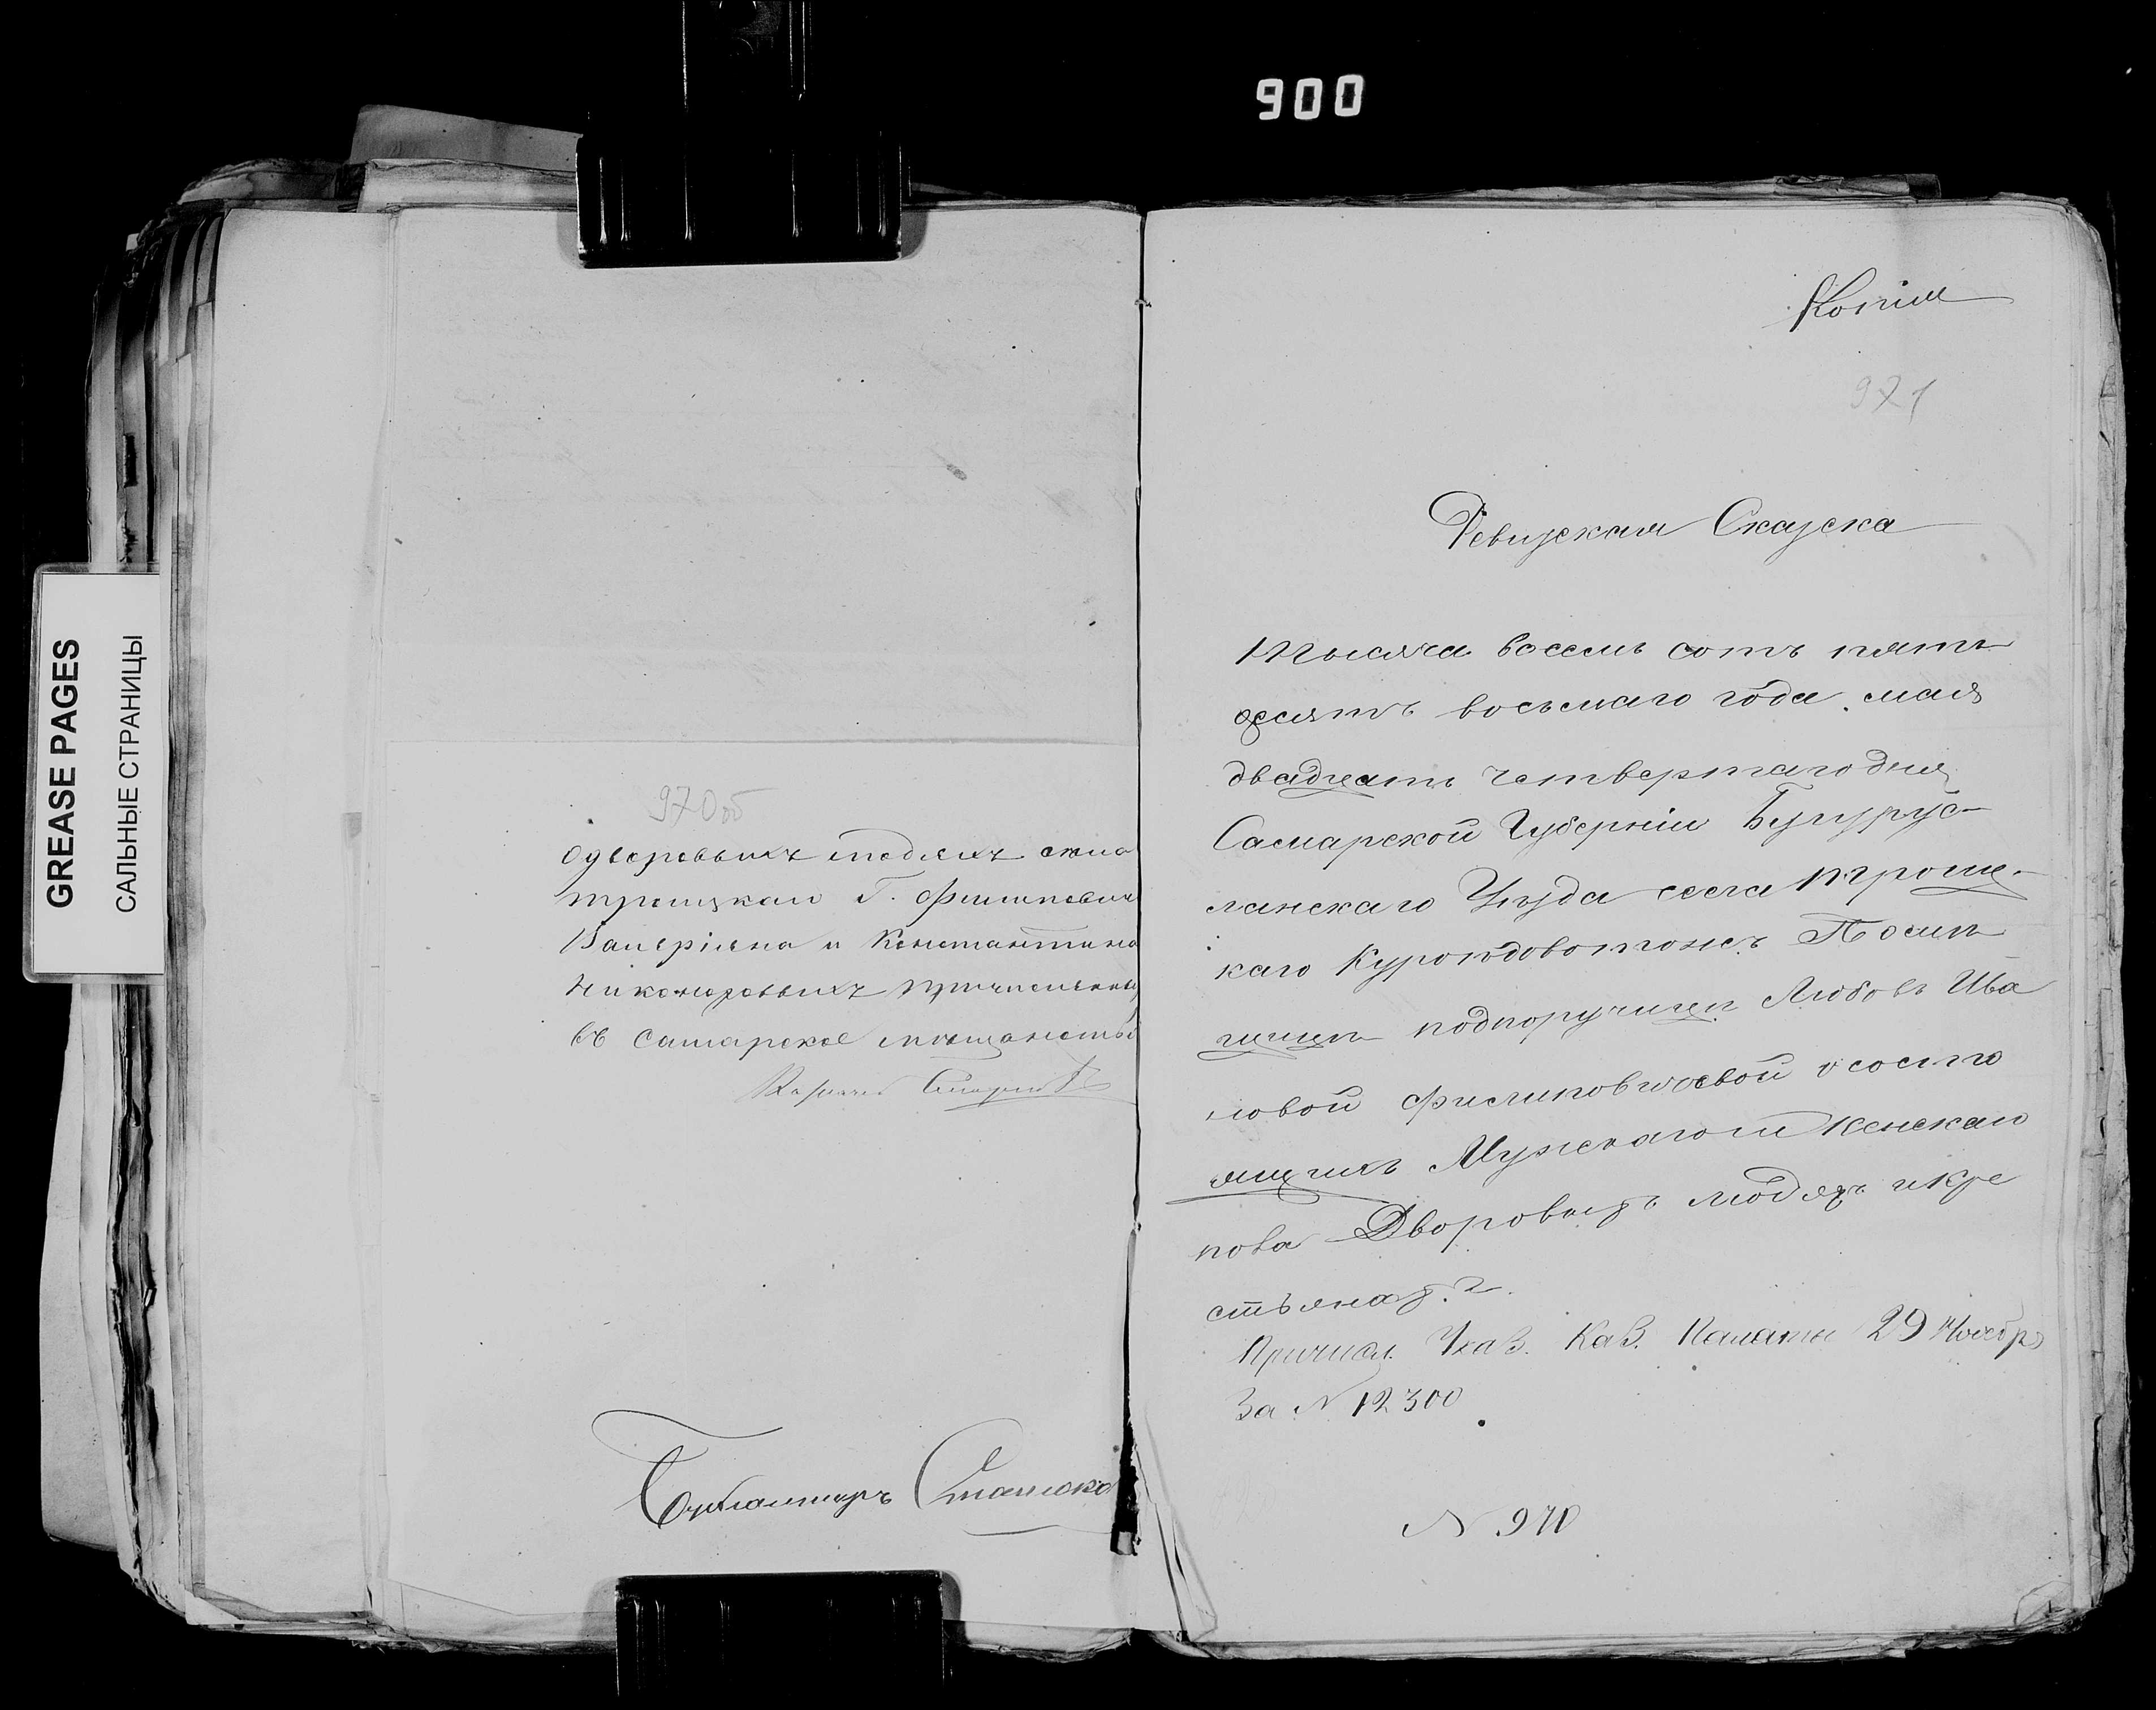 900
GREASE PAGES
САЛЬНЫЕ СТРАНИЦЫ
970об
о дворовыхъ людяхъ села
Троицкаго Г. Филипович
Валеріяна и Константина
Никоноровыхъ причислены
въ Самарское мещанство
Бухгалтеръ
Копія
971
Ревизская Сказка
Тысяча восемь сотъ пять
десятъ восьмаго года мая
двадцать четвертаго дня
Самарской Губерніи Бугурус
ланскаго Уезда села Троиц
каго Куроѣдово тожъ Помѣ
щицы подпоручицы Любовь Ива
новой Филиповичевой о состо
ящихъ Мужескаго и Женскаго
пола Дворовыхъ людяхъ и кре
стьянахъ.
Причисл. Указ. Каз. Палаты 29 Ноябр
За № 12300
№ 970